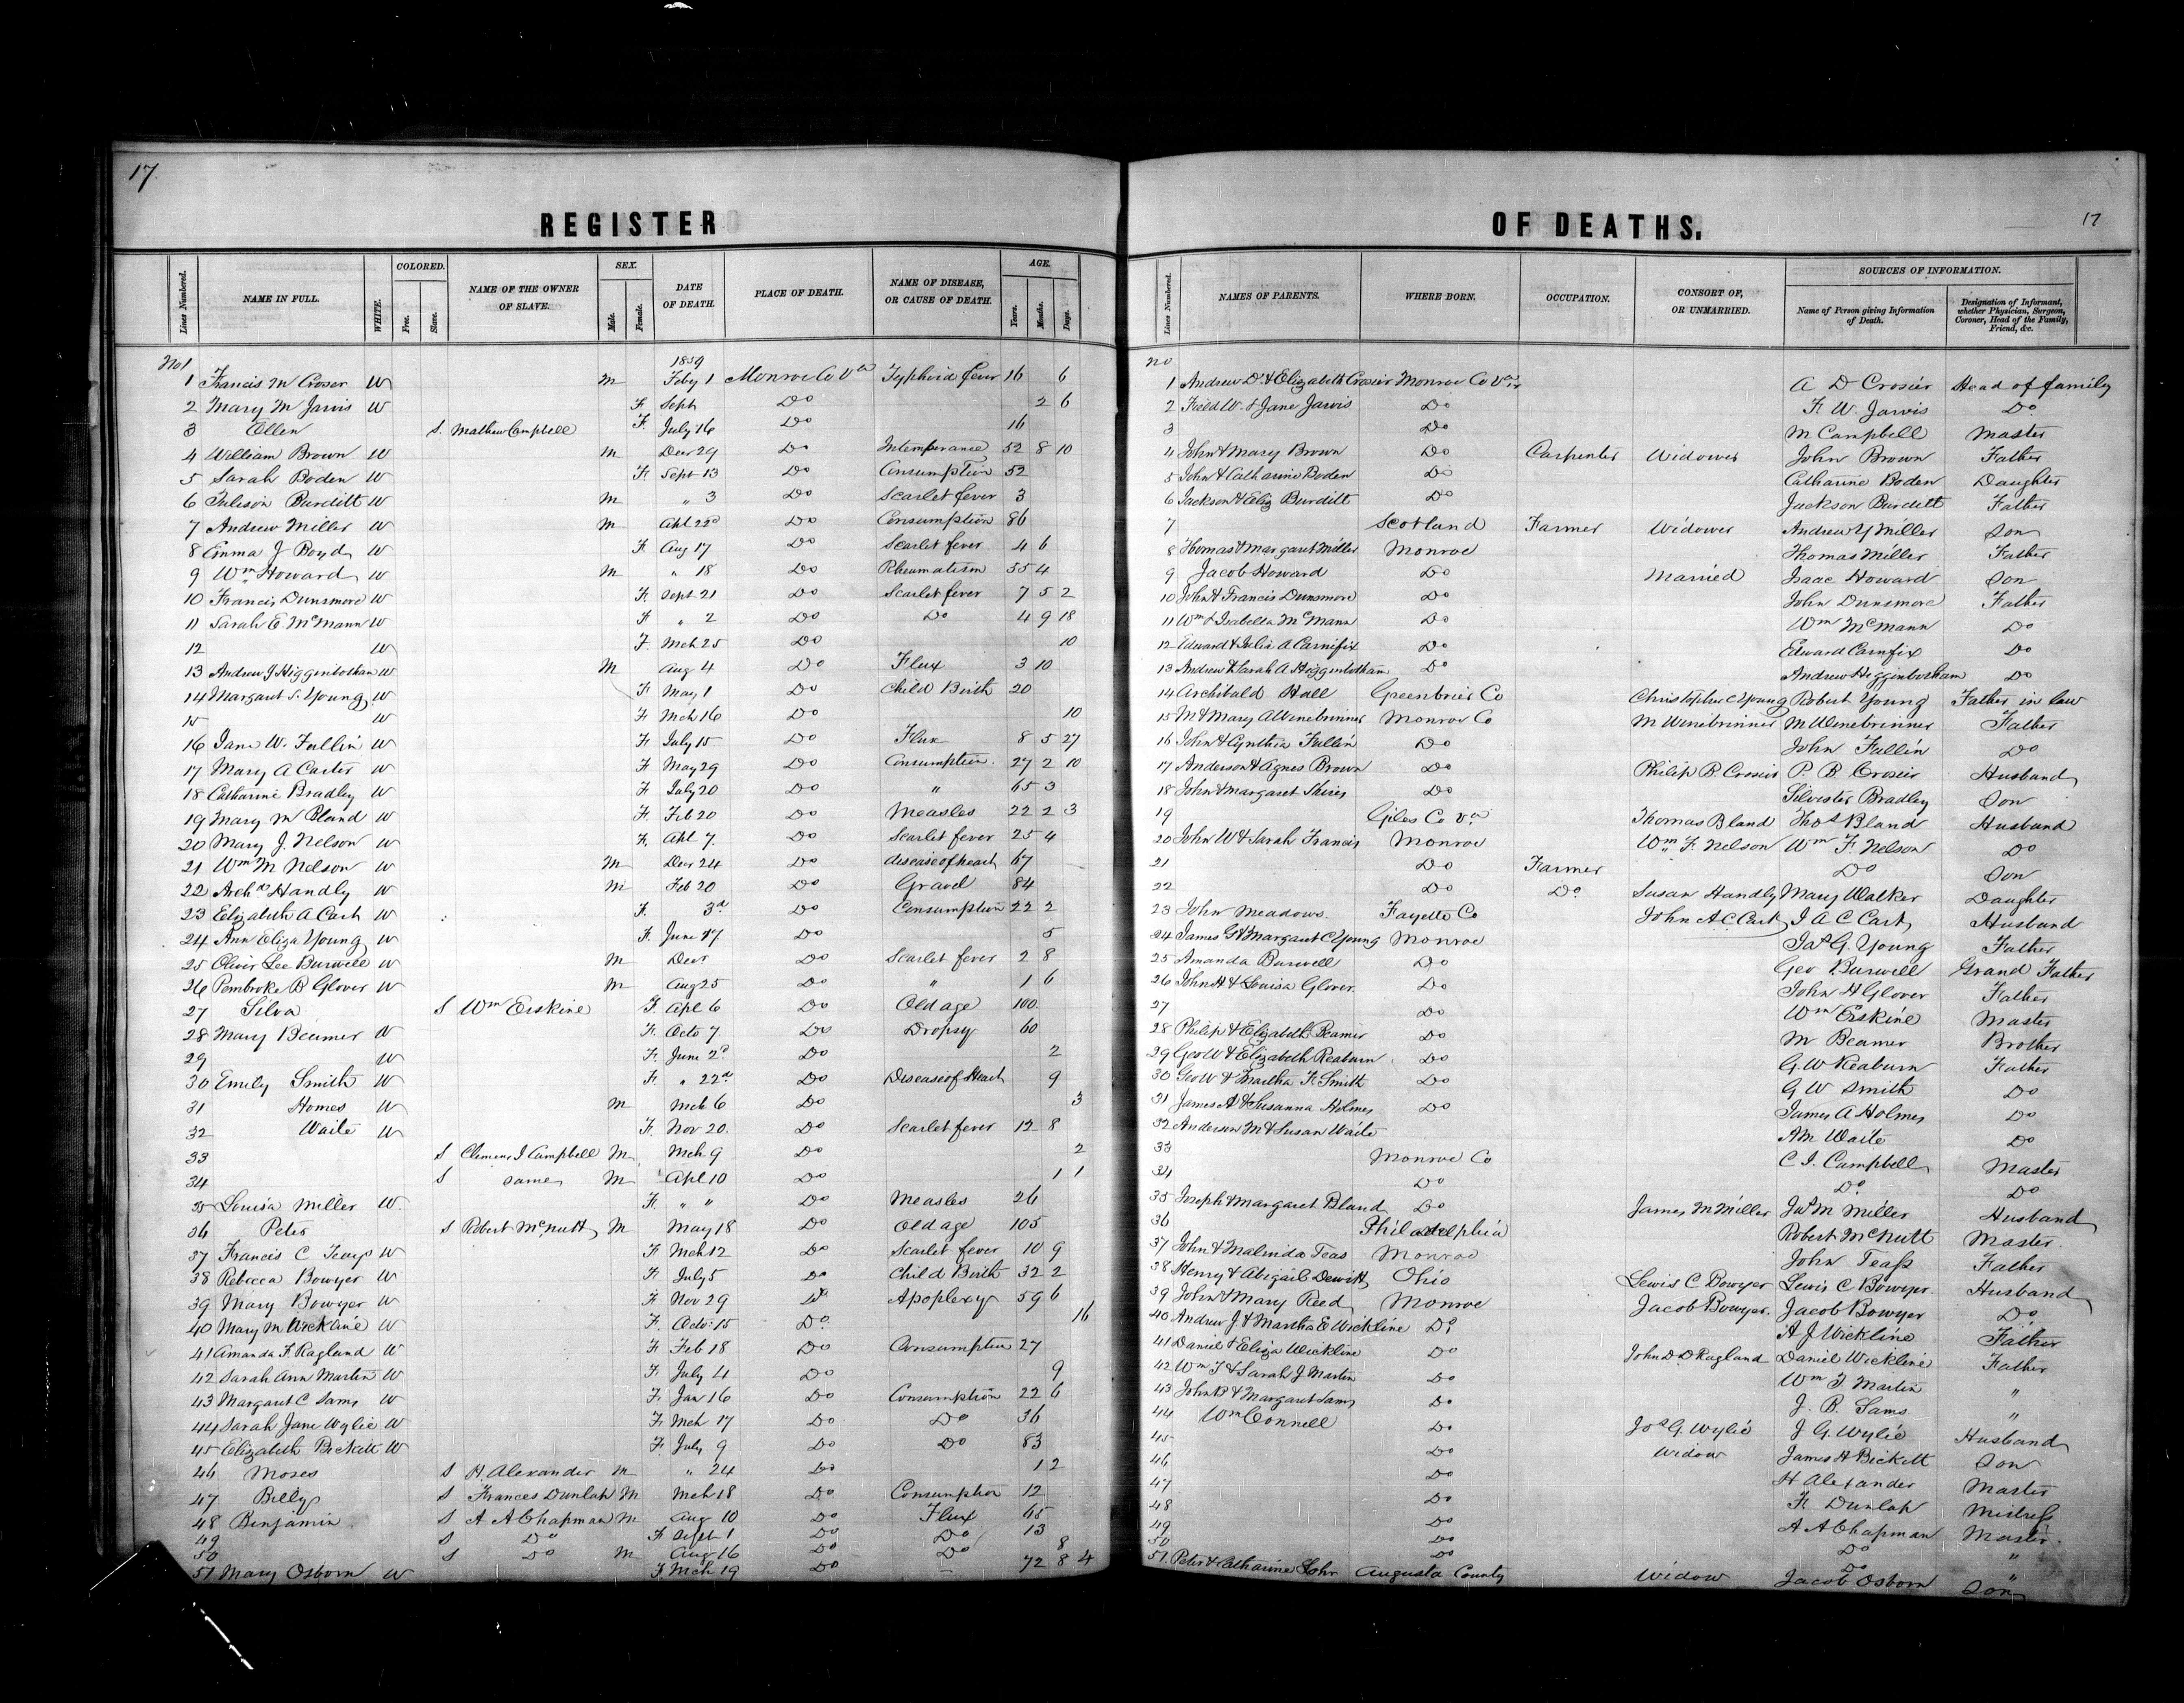 17
REGISTER
Lines Numbered. NAME IN FULL. WHITE. COLORED. Free. Slave. NAME OF THE OWNER OF SLAVE. SEX. Male. Female. DATE OF DEATH. PLACE OF DEATH. NAME OF DISEASE, OR CAUSE OF DEATH. AGE. Years. Months. Days.
No 1 1859
1 Francis M Croser W M Feby 1 Monroe Co Va Typhoid fever 16 6
2 Mary M Jarvis W F. Sept Do 2 6
3 Ellen S. Mathew Campbell F. July 16 Do 16
4 William Brown W M Decr 29 Do Intemperance 52 8 10
5 Sarah Boden W F. Sept 13 Do Consumption 52
6 Burditt W M " 3 Do Scarlet fever 3
7 Andrew Miller W M Apl 22d Do Consumption 86
8 Emma J Boyd W F. Aug 17 Do Scarlet fever 4 6
9 Wm Howard W M " 18 Do Rheumatism 55 4
10 Francis Dunsmore W F. Sept 21 Do Scarlet fever 7 5 2
11 Sarah E McMann W F " 2 Do Do 4 9 18
12 W F. Mch 25 Do 10
13 Andrew J Higginbotham W M Aug 4 Do Flux 3 10
14 Margaret S. Young W F. May 1 Do Child Birth 20
15 W F. Mch 16 Do 10
16 Jane W. Fullin W F. July 15 Do Flux 8 5 27
17 Mary A Carter W F. May 29 Do Consumption. 27 2 10
18 Catharine Bradley W F July 20 Do " 65 3
19 Mary M Bland W F. Feb 20 Do Measles 22 2 3
20 Mary J. Nelson W F. Apl 7. Do Scarlet fever 25 4
21 Wm M Nelson W M Decr 24 Do disease of heart 67
22 Archd Handly W M Feb 20 Do Gravel 84
23 Elizabeth A Cart W F. 3d Do Consumption 22 2
24 Ann Eliza Young W F. June 17 Do 5
25 Oliver Lee Burwell W M Decr Do Scarlet fever 2 8
26 Pembroke B Glover W M Aug 25 Do " 1 6
27 Silva S Wm Erskine F. Apl 6 Do Old age 100
28 Mary Beamer W F. Octo 7 Do Dropsy 60
29 W F. June 2d Do 2
30 Emily Smith W F. " 22d Do Disease of Heart 9
31 Homes W M Mch 6 Do 3
32 Waite W F. Nov 20. Do Scarlet fever 12 8
33 S Clemens J Campbell M Mch 9 Do 2
34 S same M Apl 10 Do 1 1
35 Louisa Miller W. F. " " Do Measles 26
36 Peter S Robert McNutt M May 18 Do Old age 105
37 Francis C W F Mch 12 Do Scarlet fever 10 9
38 Rebecca Bowyer W F July 5 Do Child Birth 32 2
39 Mary Bowyer W F Nov 29 Do Apoplexy 59 6
40 Mary M Wickline W F. Octo: 15 Do. 16
41 Amanda F. Ragland W F Feb 18 Do Consumption 27
42 Sarah Ann Martin W F July 4 Do 9
43 Margaret C Sams W F. Jan 16 Do Consumption 22 6
44 Sarah Jane Wylie W F. Mch 17 Do Do 36
45 Elizabeth Bickett W F. July 9 Do Do 83
46 Moses S H. Alexander M " 24 Do 1 2
47 Billy S Frances Dunlap M Mch 18 Do Consumption 12
48 Benjamin S A A Chapman M Aug 10 Do Flux 65
49 S Do F Sept 1 Do Do 13
50 S Do M Aug 16 Do Do 8
51 Mary Osborn W F. Mch 19 Do 72 8 4
OF DEATHS.
17
Lines Numbered. NAMES OF PARENTS. WHERE BORN. OCCUPATION. CONSORT OF, OR UNMARRIED. SOURCES OF INFORMATION. Name of Person giving Information of Death. Designation of Informant, whether Physician, Surgeon, Coroner, Head of the Family, Friend, &c.
No
1 Andrew D. & Elizabeth Crosier Monroe Co Va A D Crosier Head of family
2 Field W. & Jane Jarvis Do F. W. Jarvis Do
3 Do M Campbell Master
4 John & Mary Brown Do Carpenter Widower John Brown Father
5 John & Catharine Boden Do Catharine Boden Daughter
6 Jackson & Eliz Burditt Do Jackson Burditt Father
7 Scotland Farmer Widower Andrew Y Miller Son
8 Thomas & Margaret Miller Monroe Thomas Miller Father
9 Jacob Howard Do Married Isaac Howard Son
10 John & Francis Dunsmore Do John Dunsmore Father
11 Wm & Isabella McMann Do Wm McMann Do
12 Edward & Julia A Carnifix Do Edward Carnfix Do
13 Andrew & Sarah A Higginbotham Do Andrew Higginbotham Do
14 Archibald Hall Greenbrier Co Christopher C Young Robert Young Father in law
15 M & Mary A Winebrinner Monroe Co M Winebrinner M Winebrinner Father
16 John & Cynthia Fullin Do John Fullin Do
17 Anderson & Agnes Brown Do Philip B Crosier P. B. Crosier Husband
18 John & Margaret Shires Do Silvester Bradley Son
19 Giles Co Va Thomas Bland Thos Bland Husband
20 John W & Sarah Francis Monroe Wm F. Nelson Wm F. Nelson Do
21 Do Farmer Do Son
22 Do Do. Susan Handly Mary Walker Daughter
23 John Meadows. Fayette Co John A C Cart J A C Cart Husband
24 James G & Margaret C Young Monroe Jas G. Young Father
25 Amanda Burwell Do Geo Burwell Grand Father
26 John H & Louisa Glover. Do John H Glover Father
27 Do Wm Erskine Master
28 Philip & Elizabeth Beamer Do M Beamer Brother
29 Geo W & Elizabeth Reaburn Do G. W Reaburn Father
30 Geo W & Martha F. Smith Do G W Smith Do
31 James A & Susanna Holmes Do James A Holmes Do
32 Anderson M & Susan Waite A M Waite Do
33 Monroe Co C J. Campbell Master
34 Do Do Do
35 Joseph & Margaret Bland Do James M Miller Jas M Miller Husband
36 Philadelphia Robert McNutt Master.
37 John & Malinda Teas Monroe John Teass Father
38 Henry & Abigail Dewitt Ohio Lewis C Bowyer Lewis C Bowyer. Husband
39 John & Mary Reed Monroe Jacob Bowyer. Jacob Bowyer Do
40 Andrew J & Martha E Wickline Do A J Wickline Father
41 Daniel & Eliza Wickline Do John D D Ragland Daniel Wickline Father
42 Wm T & Sarah J Martin Do Wm T. Martin "
43 John B & Margaret Sams Do J. B. Sams "
44 Wm Connell Do Jos G. Wylie J G. Wylie Husband
45 Do Widow James H Bickett Son
46 Do H Alexander Master
47 Do F. Dunlap Mistress
48 Do A A Chapman Master.
49 Do Do "
50 Do Do "
51. Peter & Catharine Augusta County Widow Jacob Osborn Son